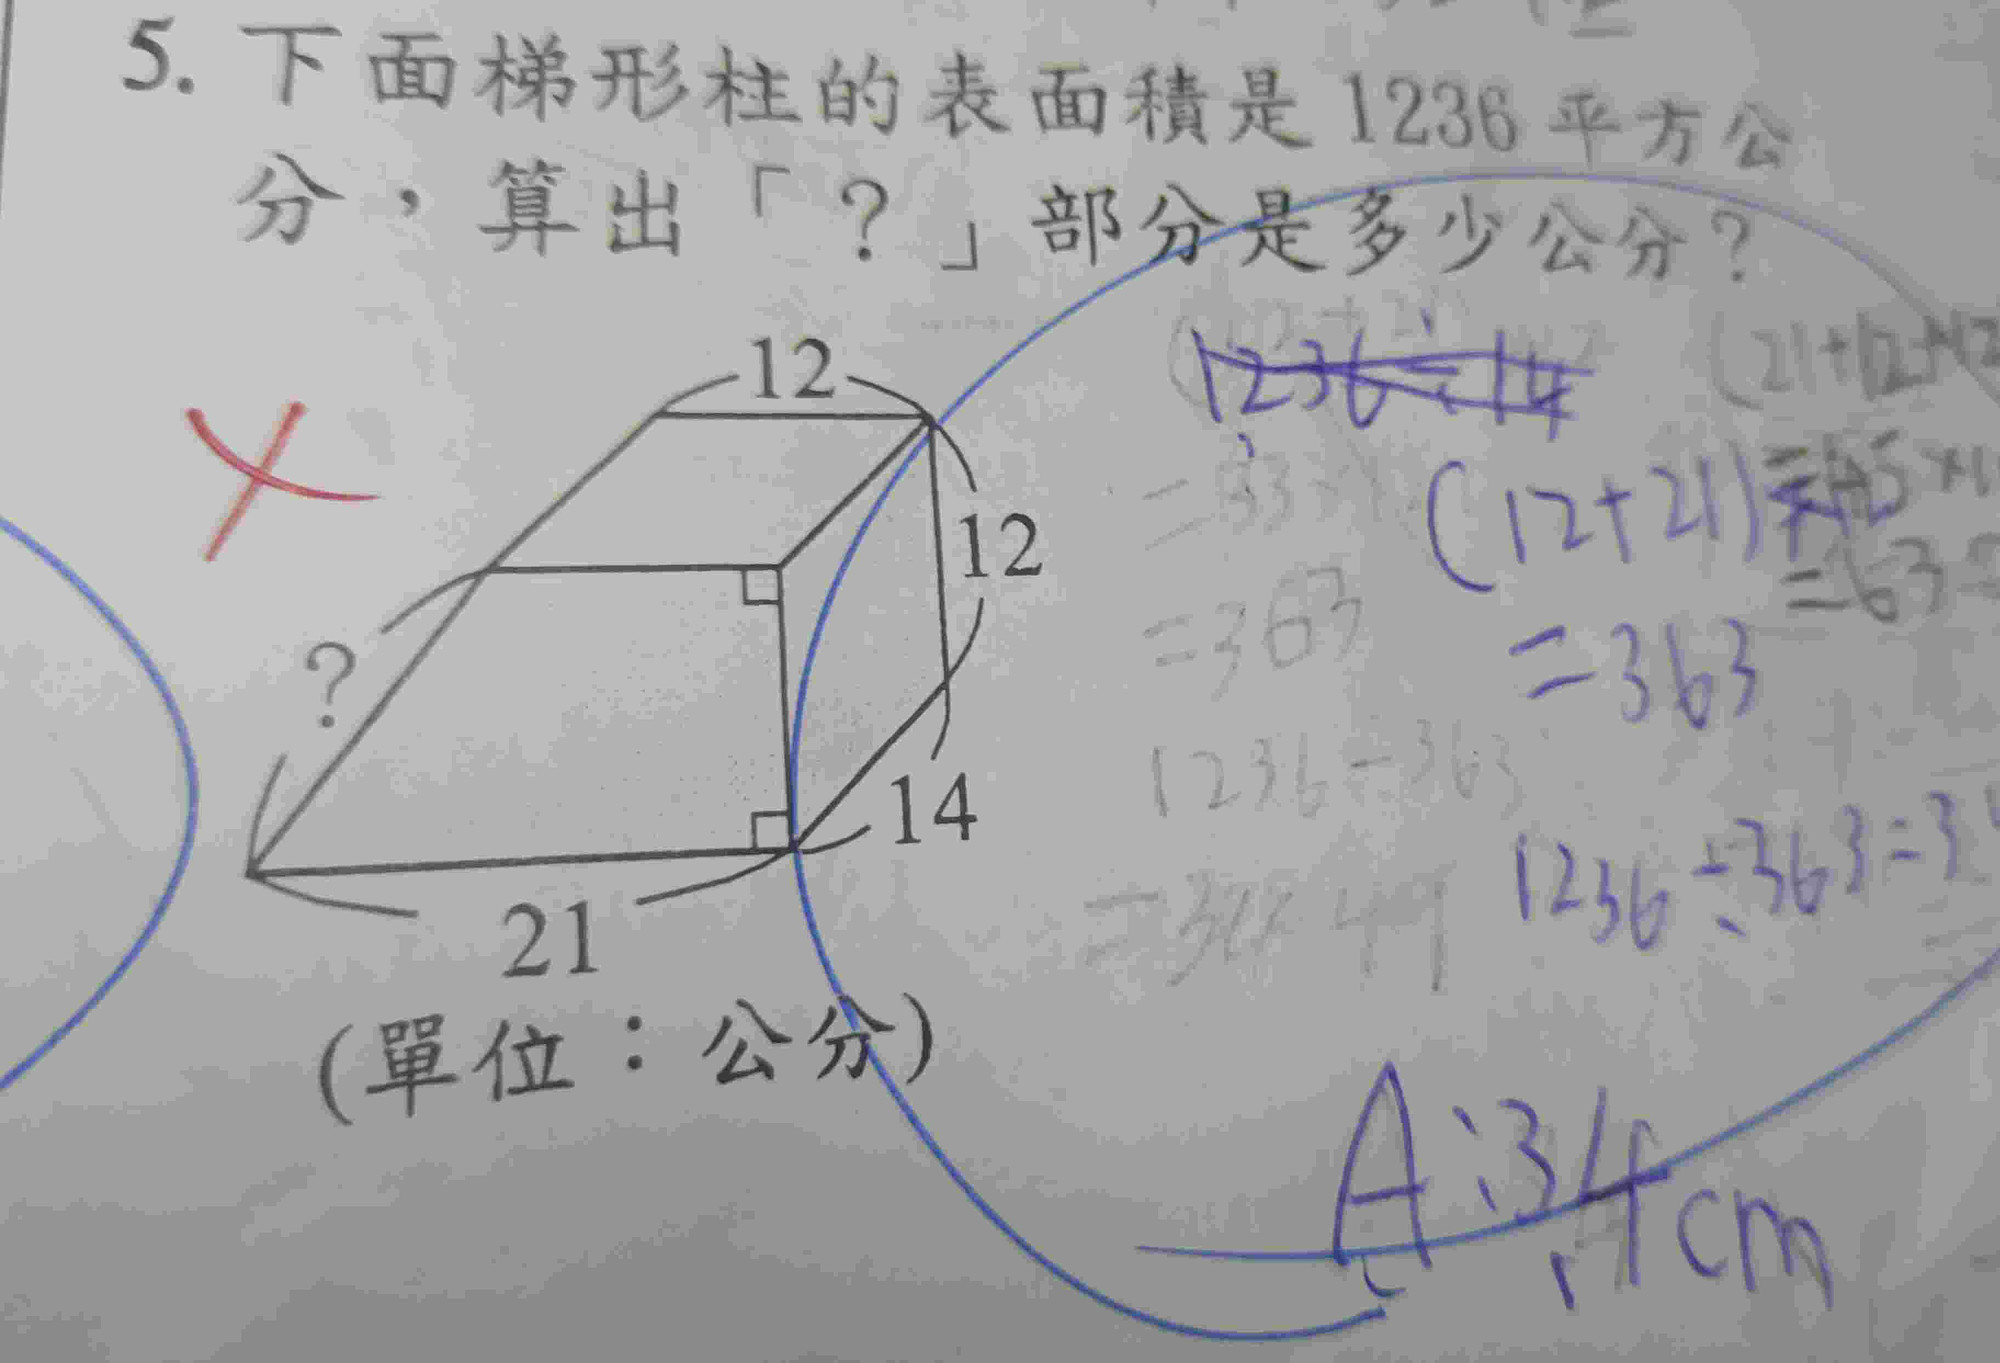 5. 下面梯形柱的表面積是 1236 平方公
分，算出「?」部分是多少公分?
12
1236÷14
(21+12+12
12
(12+21)
=33
=363
=363
?
1236÷363
14
1236÷363=3
21
(單位：公分)
A:3.4cm